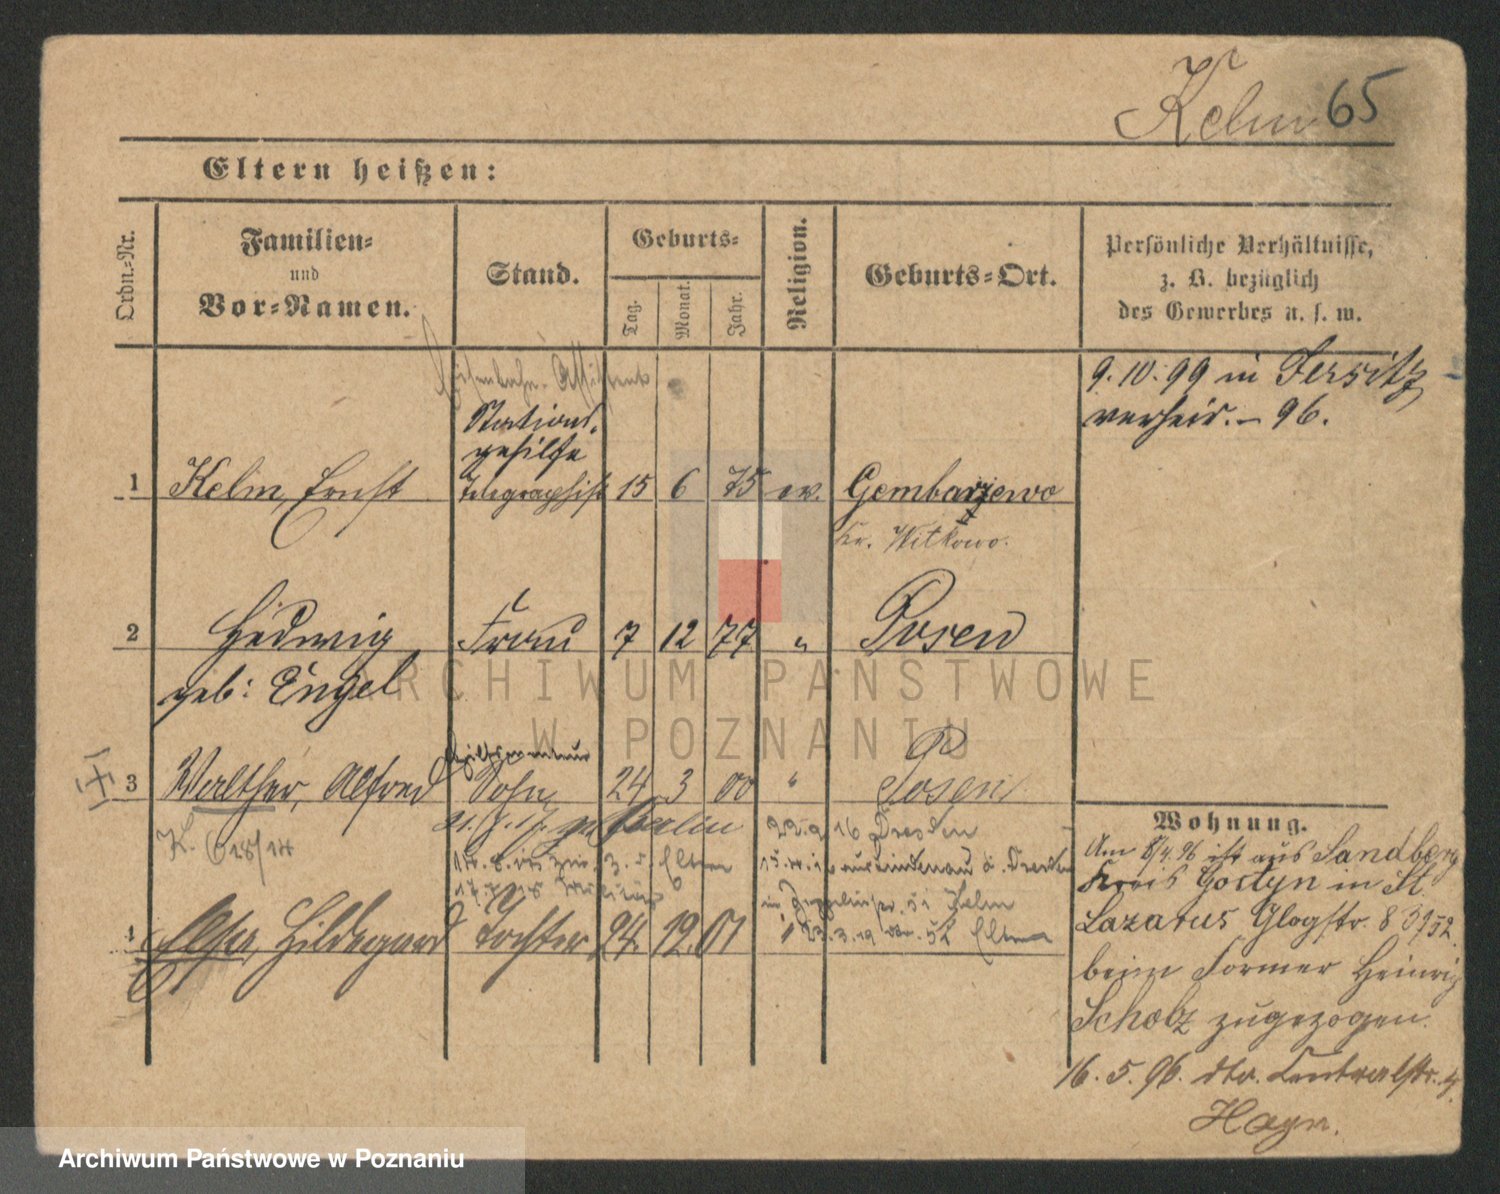 Kelm 65
Eltern heißen:
Ordn.-Nr.
Familien-
und
Vor-Namen.
Stand.
Geburts-
Tag.
Monat.
Jahr.
Religion.
Geburts-Ort.
Persönliche Verhältnisse,
z. B. bezüglich
des Gewerbes u. s. w.
Eisenbahn-Assistent
9.10.99 in Jersitz
verheir. – 96.
Stations-
gehilfe
1 Kelm, Ernst Telegraphist 15 6 75 ev. Gembarzewo
Kr. Witkowo.
2 Hedwig Frau 7 12 77 " Posen
geb: Engel
3 Walther, Alfred Sohn 24 3 00 " Posen
Berlin 22.9.16 Dresden
K. 618/14
z. d. Eltern
4 Else, Hildegard Tochter 24 12 01 " 23.3.19 52 Eltern
Wohnung.
Am 8/4.96 ist aus Sandberg
Kreis Gostyn in St.
Lazarus Glogstr. 8
beim Former Heinrich
Scholz zugezogen.
16.5.96. dto. Centralstr. 4
Hayn.
ARCHIWUM PAŃSTWOWE
W POZNANIU
Archiwum Państwowe w Poznaniu